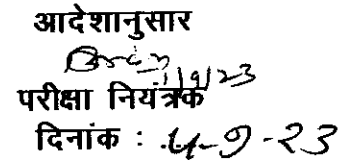 आदेशानुसार
परीक्षा नियंत्रक
दिनांक : 4-9-23